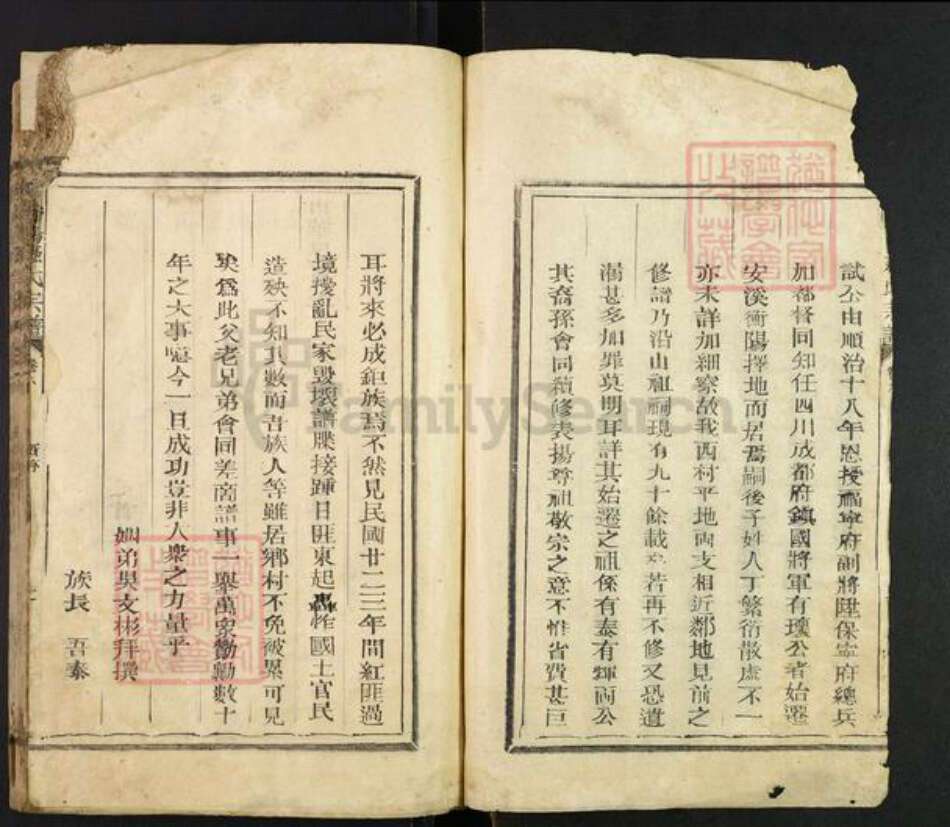 試公由順治十八年恩授福寧府副將陞保寧府總兵
加都督同知任四川成都府鎮國將軍有瓊公者始遷
安溪衝陽擇地而居焉嗣後子姓人丁繁衍散處不一
亦未詳加細察故我西村平地两支相近鄰地見前之
修譜乃沿山祖嗣現有九十餘載之若再不修又恐遺
漏甚多加罪莫明耳詳其始遷之祖係有泰有輝両公
其裔孫會同續修表揚尊祖敬宗之意不惟省費甚巨
耳將來必成鉅族焉不然見民國廿二三年間紅匪過
境擾亂民家毀壞譜牒接踵日匪東起轟炸國土官民
造殃不知其數而吾族人等雖居鄉村不免被累可見
矣爲此父老兄弟會同差商譜事一舉萬衆勷勵數十
年之大事噫今一旦成功豈非人衆之力量乎
姻弟吳文彬拜撰
族長 吾泰
氏宗譜 卷
FamilySearch